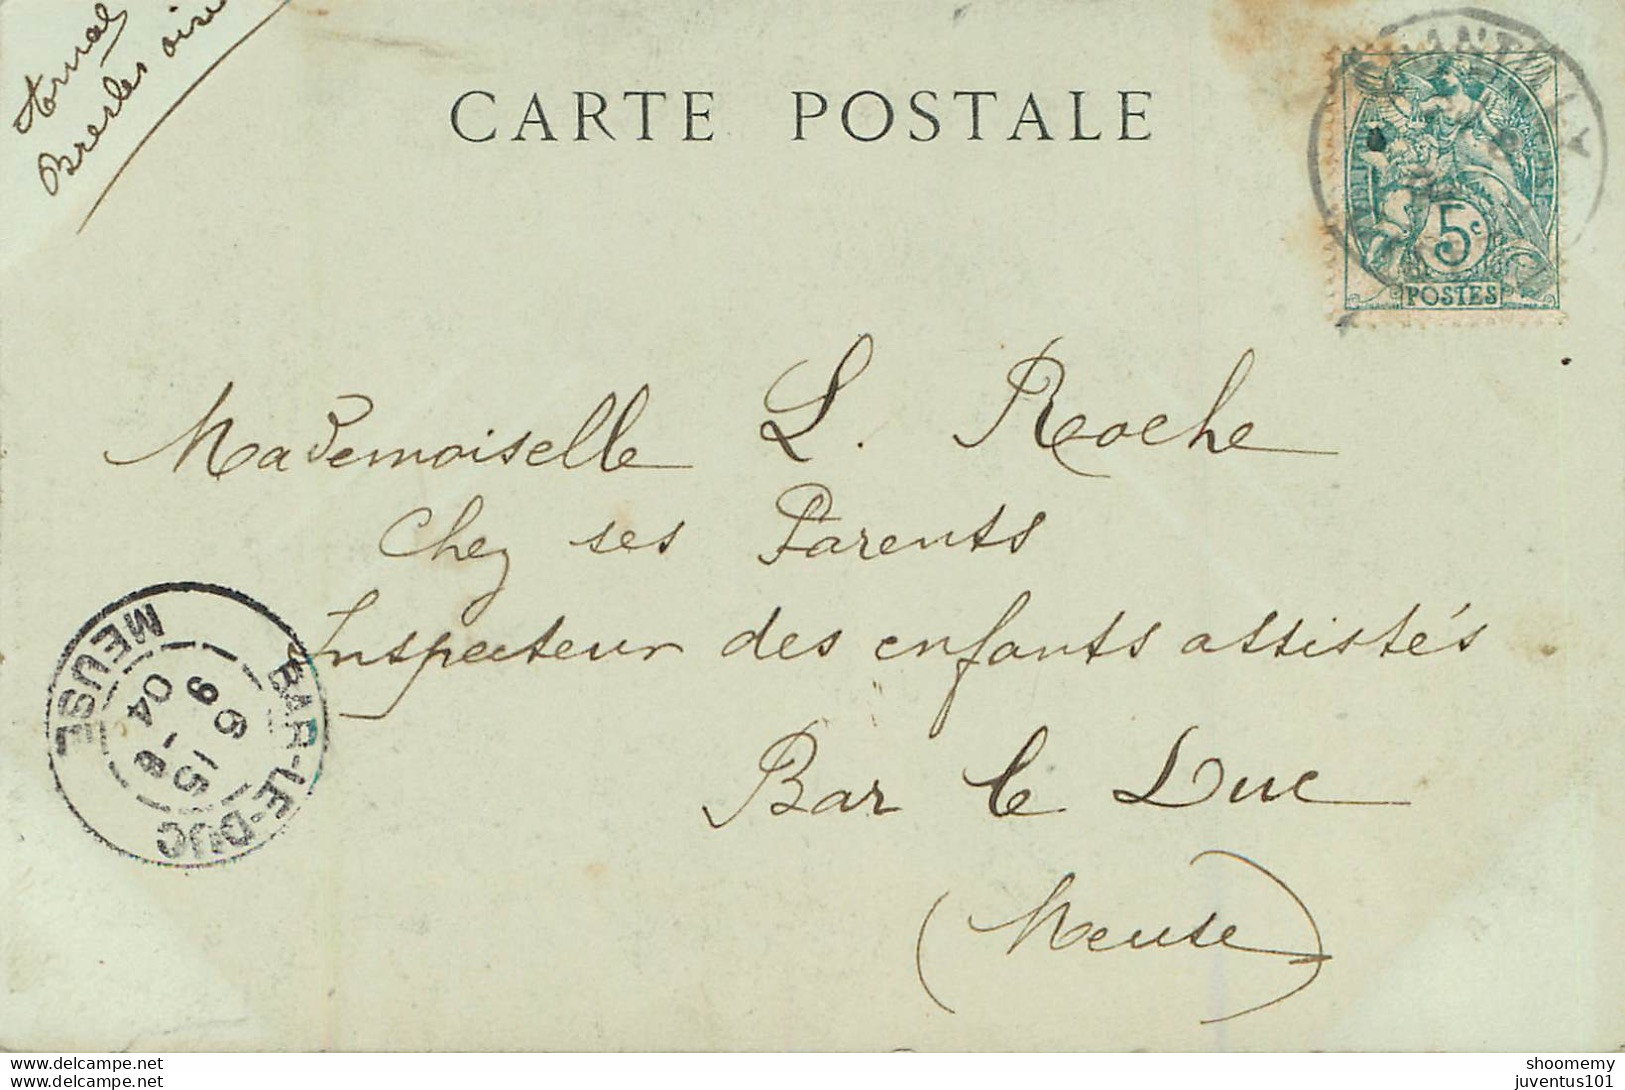 Arnal
Bresles oise
CARTE POSTALE
CHANTILLY
5c
POSTES
Mademoiselle L. Roche
Chez ses Parents
Inspecteur des enfants assistés
Bar le Duc
(Meuse)
BAR-LE-DUC
MEUSE
6 15
9 -6
04
www.delcampe.net
www.delcampe.net
shoomemy
juventus101